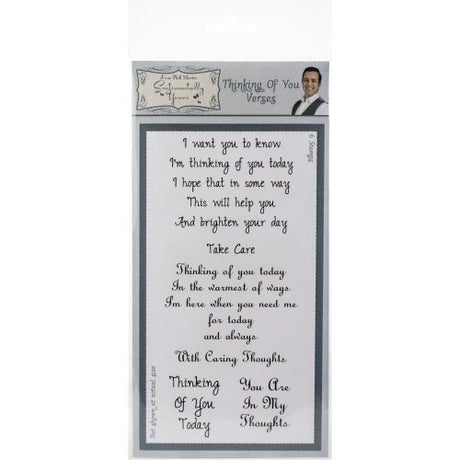 from Phill Martin
Sentimentally
Yours
Thinking Of You
Verses
6 Stamps
I want you to know
I'm thinking of you today
I hope that in some way
This will help you
And brighten your day
Take Care
Thinking of you today
In the warmest of ways
Im here when you need me
for today
and always
With Caring Thoughts
Thinking
Of You
Today
You Are
In My
Thoughts
Not shown at actual size